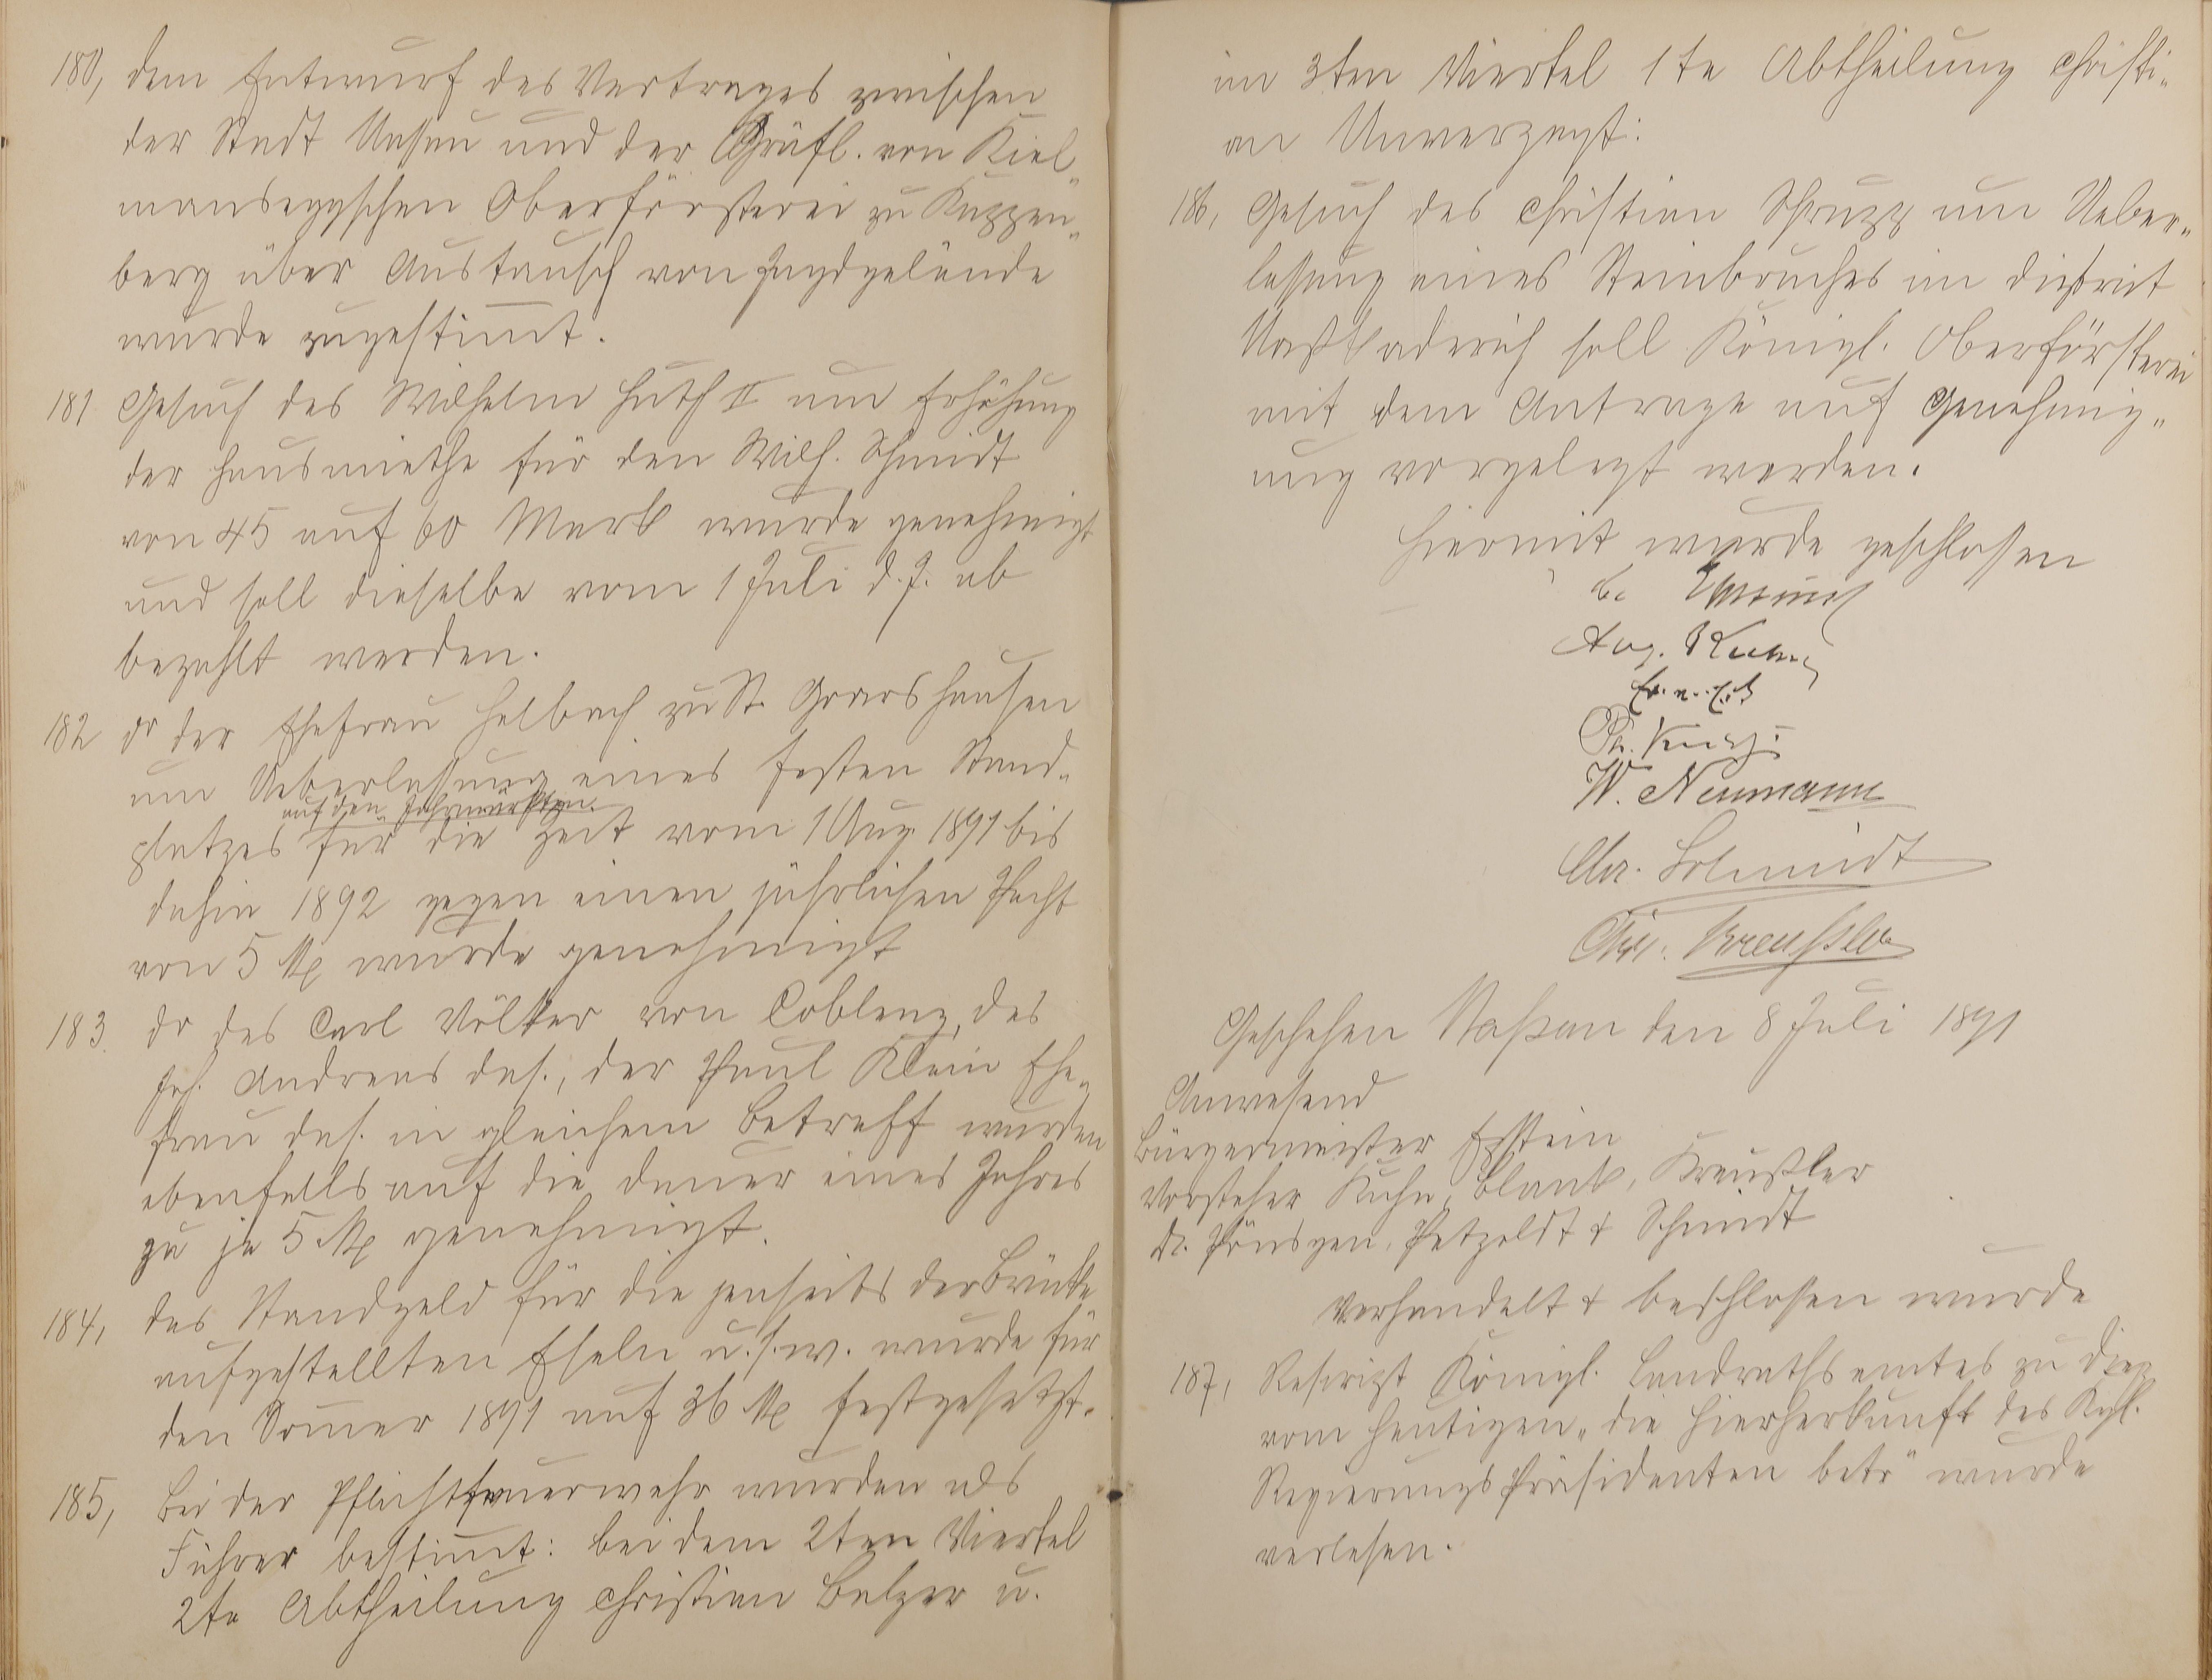 180, dem Entwurf des Vertrages zwischen
der Stadt Nassau und der Gräfl. von Kiel„
mannseggschen Oberförsterei zu Kappen„
berg über Austausch von Jagdgelände
wurde zugestim̅t.
181 Gesuch des Wilhelm Huth II um Erhöhung
der Hausmiethe für den Wilh. Schmidt
von 45 auf 60 Mark wurde genehmigt
und soll dieselbe vom 1 Juli d. J. ab
bezahlt werden.
182 do der Ehefrau Helbach zu St. Goarshausen
um Ueberlassung eines festen Stand„
auf den Jahrmärkten
platzes für die Zeit vom 1 Aug. 1891 bis
dahin 1892 gegen einen jährlichen Pacht
von 5 M wurde genehmigt
183. do des Carl Völker von Coblenz, des
Joh. Andreas das., der Paul Klein Ehe„
frau das. in gleichem Betreff wurden
ebenfalls auf die Dauer eines Jahres
zu je 5 M genehmigt.
184, das Standgeld für die jenseits der Brücke
aufgestellten Eseln u.s.w. wurde für
den Som̅er 1891 auf 36 M festgesetzt.
185, Bei der Pflichtfeuerwehr wurden als
Führer bestim̅t: bei dem 2ten Viertel
2te Abtheilung Christian Balzer u.
im 3ten Viertel 1te Abtheilung Christi„
an Unverzagt:
186, Gesuch des Christian Schrupp um Ueber„
lassung eines Steinbruches im District
soll Königl. Oberförsterei
mit dem Antrage auf Genehmig„
ung vorgelegt werden.
Hiermit wurde geschlossen
Aug. Kuhn
Ph.
W. Neumann
Chr. Schmidt
Chr. Kreußler
Geschehen Nassau den 8 Juli 1891
Anwesend
Bürgermeister Epstein
Vorsteher Kuhn, Blank, Kreußler
Dr. Pönsgen, Petzoldt & Schmidt
Verhandelt & beschlossen wurde
187, Rescript Königl. Landrathsamtes zu Diez
vom Heutigen „die Hierherkunft des Kgl.
Regierungspräsidenten betr" wurde
verlesen.